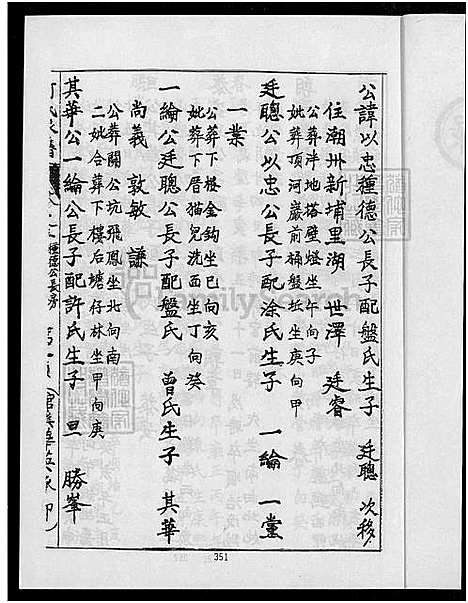 公諱以忠種德公長子配盤氏生子 廷聰 次移
住潮卅新埔里湖 世澤 廷睿
公葬洋地塔壁燈坐午向子
妣葬頂河巖前桶盤坵坐庚向甲
廷聰公以忠公長子配涂氏生子 一綸 一堂
一業
公葬下樓金鉤坐巳向亥
妣葬下厝猫兒洗面坐丁向癸
一綸公廷聰公長子配盤氏 曾氏生子 其華
尚義 敦敏 謙
公葬關公坑飛鳳坐北向南
二妣合葬下樓后塘仔林坐甲向庚
其華公一綸公長子配許氏生子 旦 勝峯
種德公長房
351